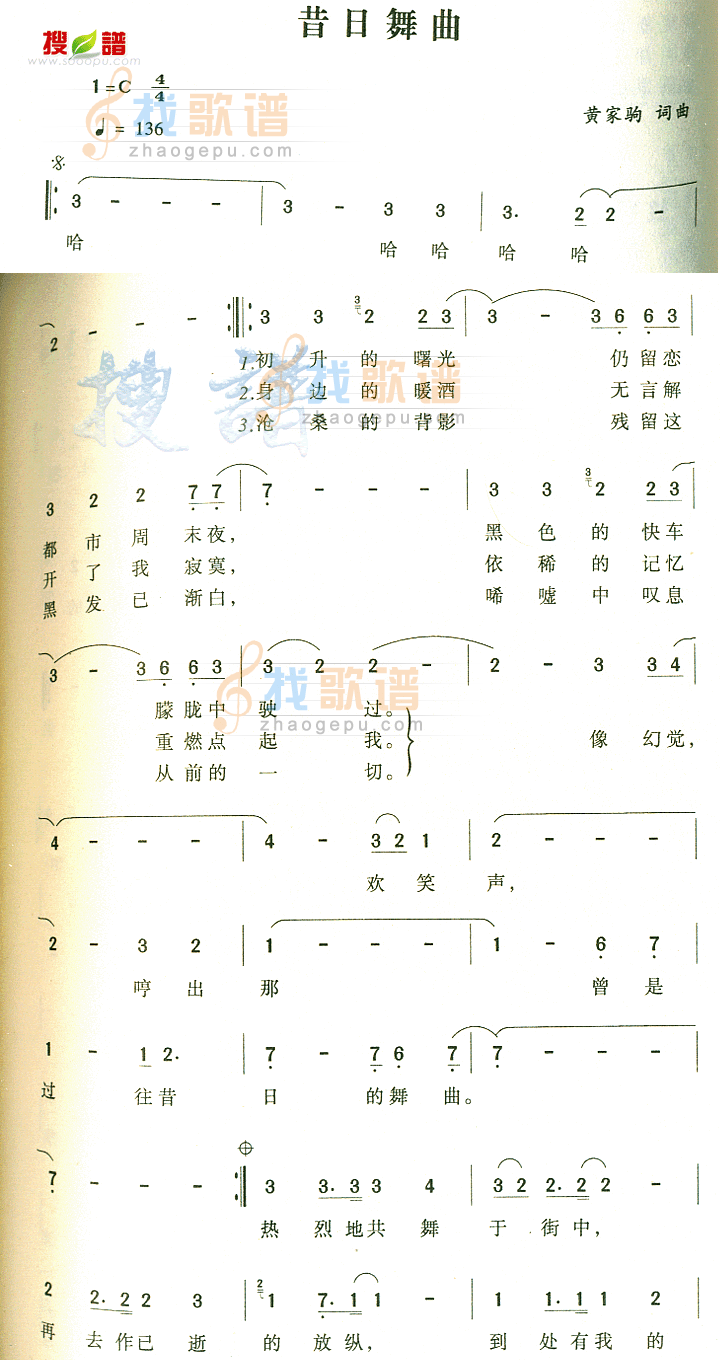 昔日舞曲
搜 譜
www.sooopu.com
1=C 4/4
♩= 136
找歌谱
zhaogepu.com
黄家驹 词曲
3 - - - | 3 - 3 3 | 3. 2 2 -
哈 哈 哈 哈 哈
2 - - - 3 3 2 2 3 | 3 - 3 6 6 3
1.初 升 的 曙光 仍留恋
2.身 边 的 暖酒 无言解
3.沧 桑 的 背影 残留这
搜譜
找歌谱
zhaogepu.com
3 2 2 7 7 | 7 - - - | 3 3 2 2 3
都 市 周 末夜, 黑 色 的 快车
开 了 我 寂寞, 依 稀 的 记忆
黑 发 已 渐白, 唏 嘘 中 叹息
3 - 3 6 6 3 | 3 2 2 - | 2 - 3 3 4
找歌谱
zhaogepu.com
朦胧中 驶 过。
重燃点 起 我。 像 幻觉,
从前的 一 切。
4 - - - | 4 - 3 2 1 | 2 - - -
欢 笑 声,
2 - 3 2 | 1 - - - | 1 - 6 7
哼 出 那 曾 是
1 - 1 2. | 7 - 7 6 7 | 7 - - -
过 往昔 日 的舞 曲。
7 - - - 3 3. 3 3 4 | 3 2 2. 2 2 -
热 烈地共 舞 于 街中,
2 2. 2 2 3 | 1 7. 1 1 - | 1 1. 1 1 2
再 去作已 逝 的 放纵, 到 处有我 的